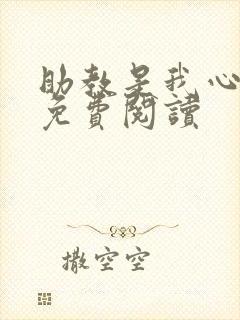 助教是我心
免費閱讀
撒空空